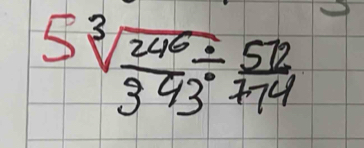 5 ∛(246/343) ÷ 512/774